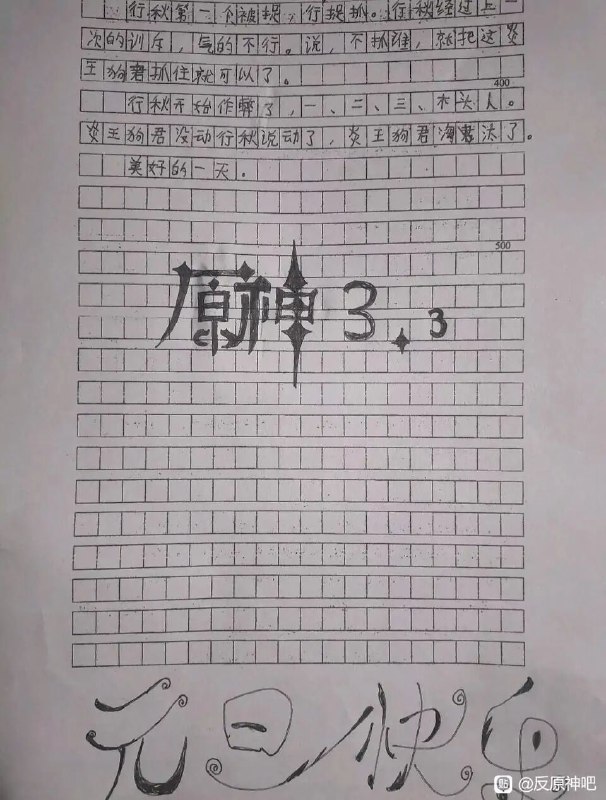 行秋第一个被捉,行捉抓。行秋经过上一
次的训斥,气的不行。说,不抓谁,就把这炎
王狗君抓住就可以了。
400
行秋开始作弊了,一、二、三、木头人。
炎王狗君没动行秋说动了,炎王狗君海汰了。
美好的一天。
500
原神3.3
元旦快乐
贴 @反原神吧